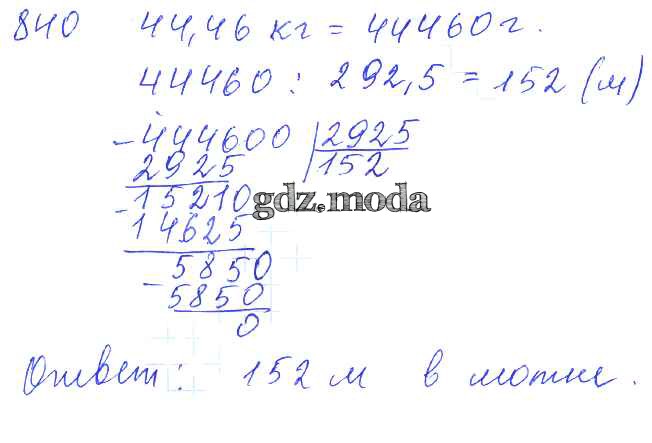 840 44,46 кг = 44460 г.
44460 : 292,5 = 152 (м)
- 444600 | 2925
2925 152
- 15210
gdz.moda
14625
- 5850
5850
0
Ответ: 152 м в мотке.